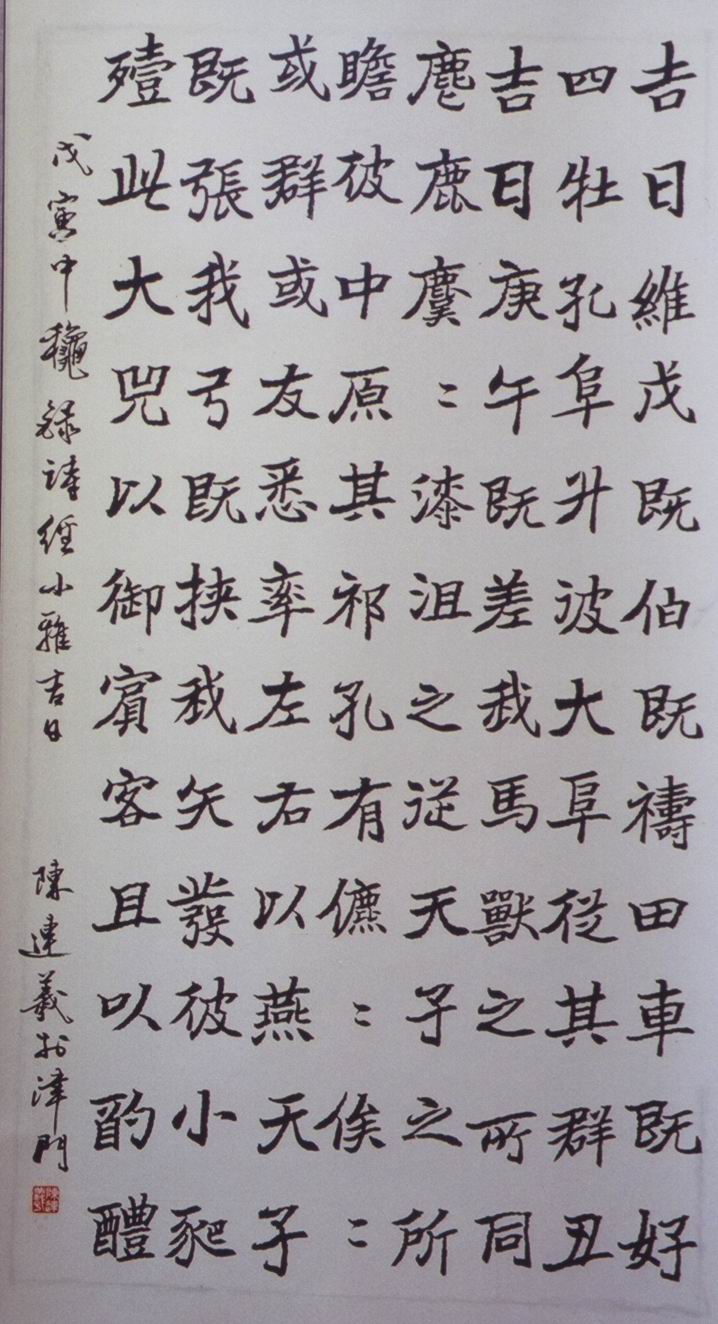 吉日維戊既伯既禱田車既好
四牡孔阜升彼大阜從其群丑
吉日庚午既差我馬獸之所同
麀鹿麌〻漆沮之從天子之所
瞻彼中原其祁孔有儦〻俟〻
或群或友悉率左右以燕天子
既張我弓既挟我矢發彼小豝
殪此大兕以御賓客且以酌醴
戊寅中龝録詩經小雅吉日 陳連羲於津門